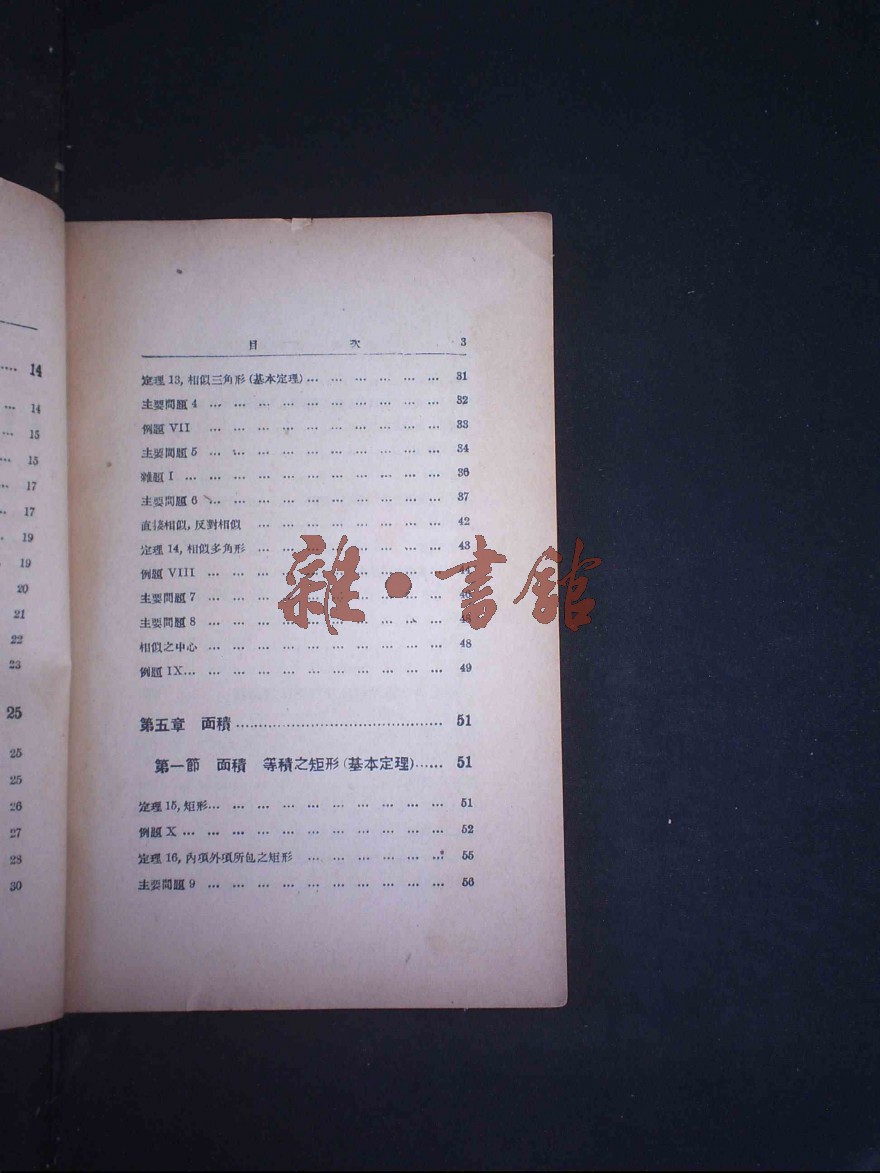 14
14
15
15
17
17
19
19
20
21
22
23
25
25
25
26
27
28
30
目 次 3
定理 13, 相似三角形 (基本定理)… … … … … … … 31
主要問題 4 … … … … … … … … … … 32
例題 VII … … … … … … … … … … 33
主要問題 5 … … … … … … … … … … 34
雜題 I … … … … … … … … … … … 36
主要問題 6 … … … … … … … … … … 37
直接相似, 反對相似 … … … … … … … … 42
定理 14, 相似多角形 … … … … … … … … 43
例題 VIII … … … … … … … … … …
主要問題 7 … … … … … … … … … …
主要問題 8 … … … … … … … … … … 48
相似之中心 … … … … … … … … … … 48
例題 IX… … … … … … … … … … … 49
第五章 面積 …………………………………… 51
第一節 面積 等積之矩形 (基本定理)…… 51
定理 15, 矩形… … … … … … … … … … 51
例題 X … … … … … … … … … … … 52
定理 16, 內項外項所包之矩形 … … … … … … 55
主要問題 9 … … … … … … … … … … 56
雜·書館